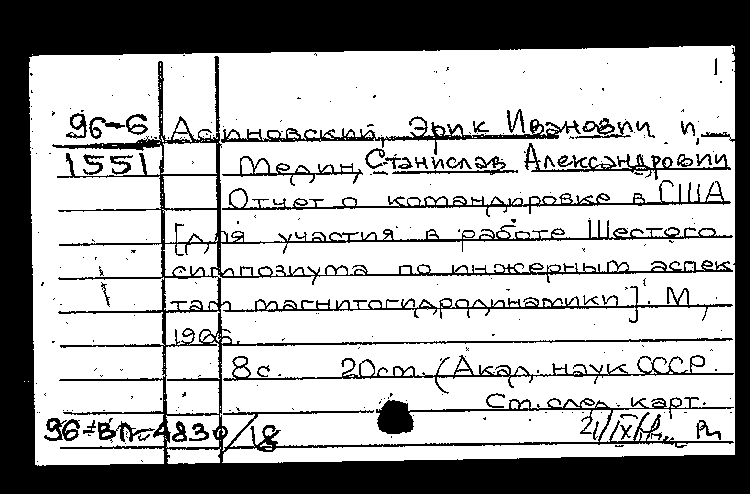 1
96-6 Асиновский, Эрик Иванович и
1551 Медин, Станислав Александрович
Отчет о командировке в США
[для участия в работе Шестого
симпозиума по инжерным аспек-
там магнитогидродинамики]. М.,
1966.
8с. 20см. (Акад. наук СССР.
См. след. карт.
96-ВП-4830/18